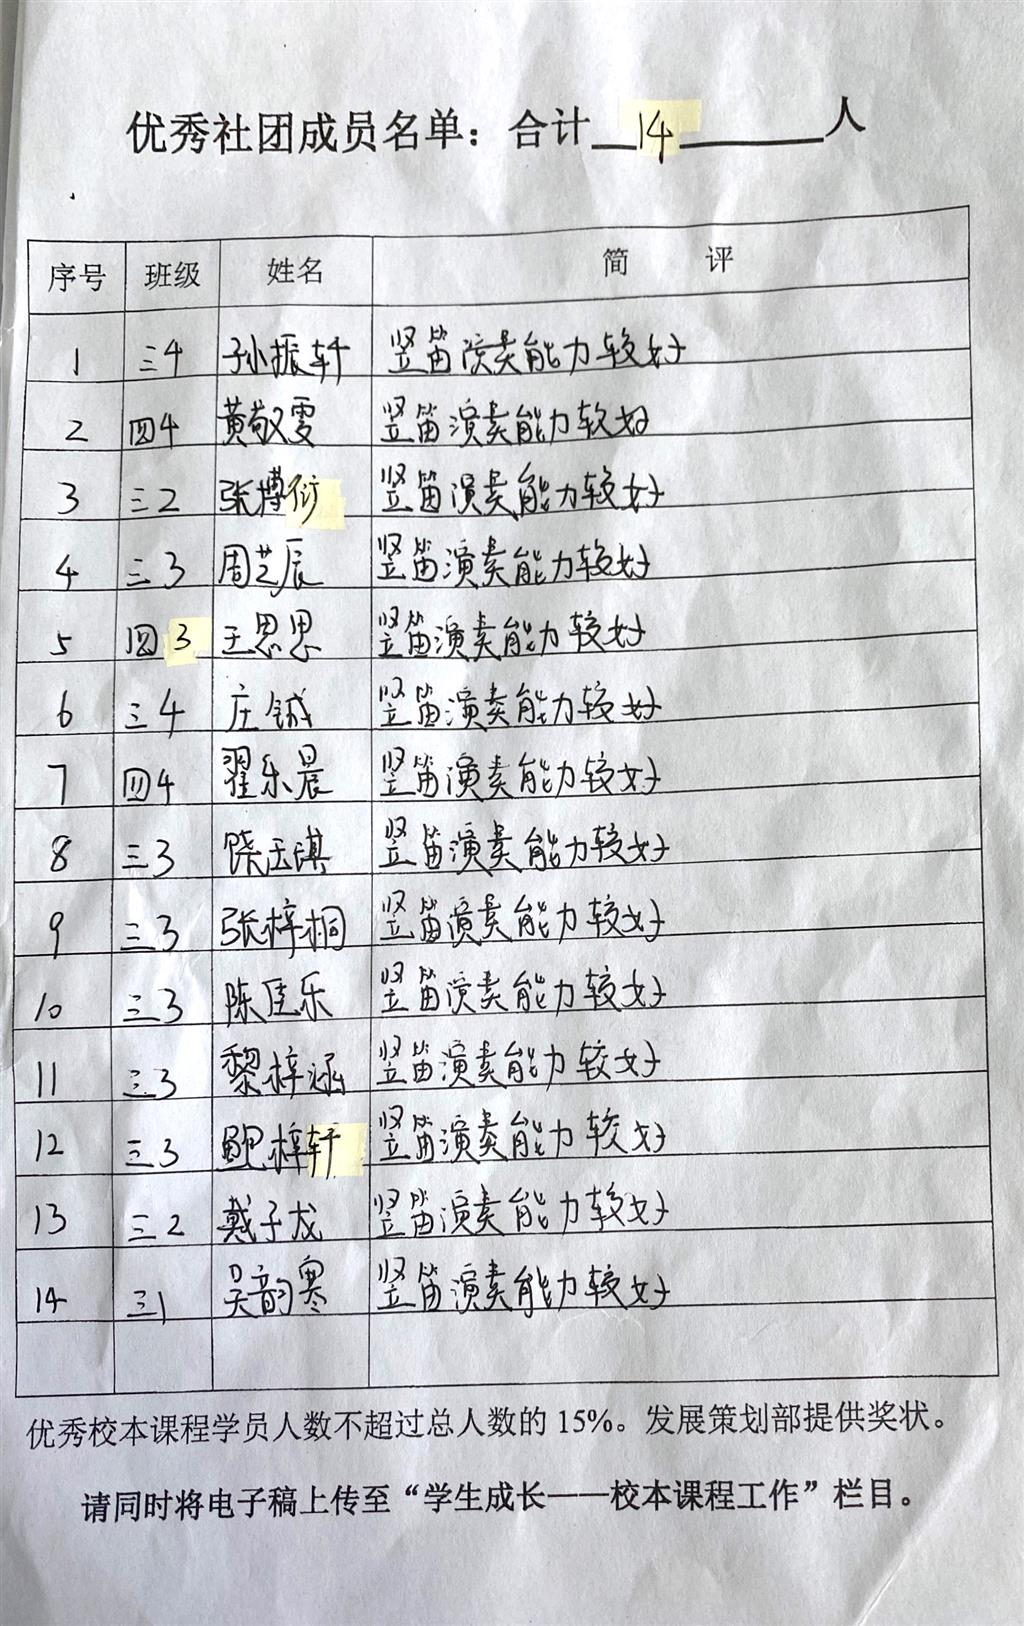 优秀社团成员名单：合计 14 人
序号 班级 姓名 简 评
1 三4 孙振轩 竖笛演奏能力较好
2 四4 黄敬雯 竖笛演奏能力较好
3 三2 张博衍 竖笛演奏能力较好
4 三3 周芝辰 竖笛演奏能力较好
5 四3 王思思 竖笛演奏能力较好
6 三4 庄铖 竖笛演奏能力较好
7 四4 翟乐晨 竖笛演奏能力较好
8 三3 饶玉琪 竖笛演奏能力较好
9 三3 张梓桐 竖笛演奏能力较好
10 三3 陈佳乐 竖笛演奏能力较好
11 三3 黎梓涵 竖笛演奏能力较好
12 三3 鲍梓轩 竖笛演奏能力较好
13 三2 戴子龙 竖笛演奏能力较好
14 三1 吴韵寒 竖笛演奏能力较好
优秀校本课程学员人数不超过总人数的 15%。发展策划部提供奖状。
请同时将电子稿上传至“学生成长——校本课程工作”栏目。